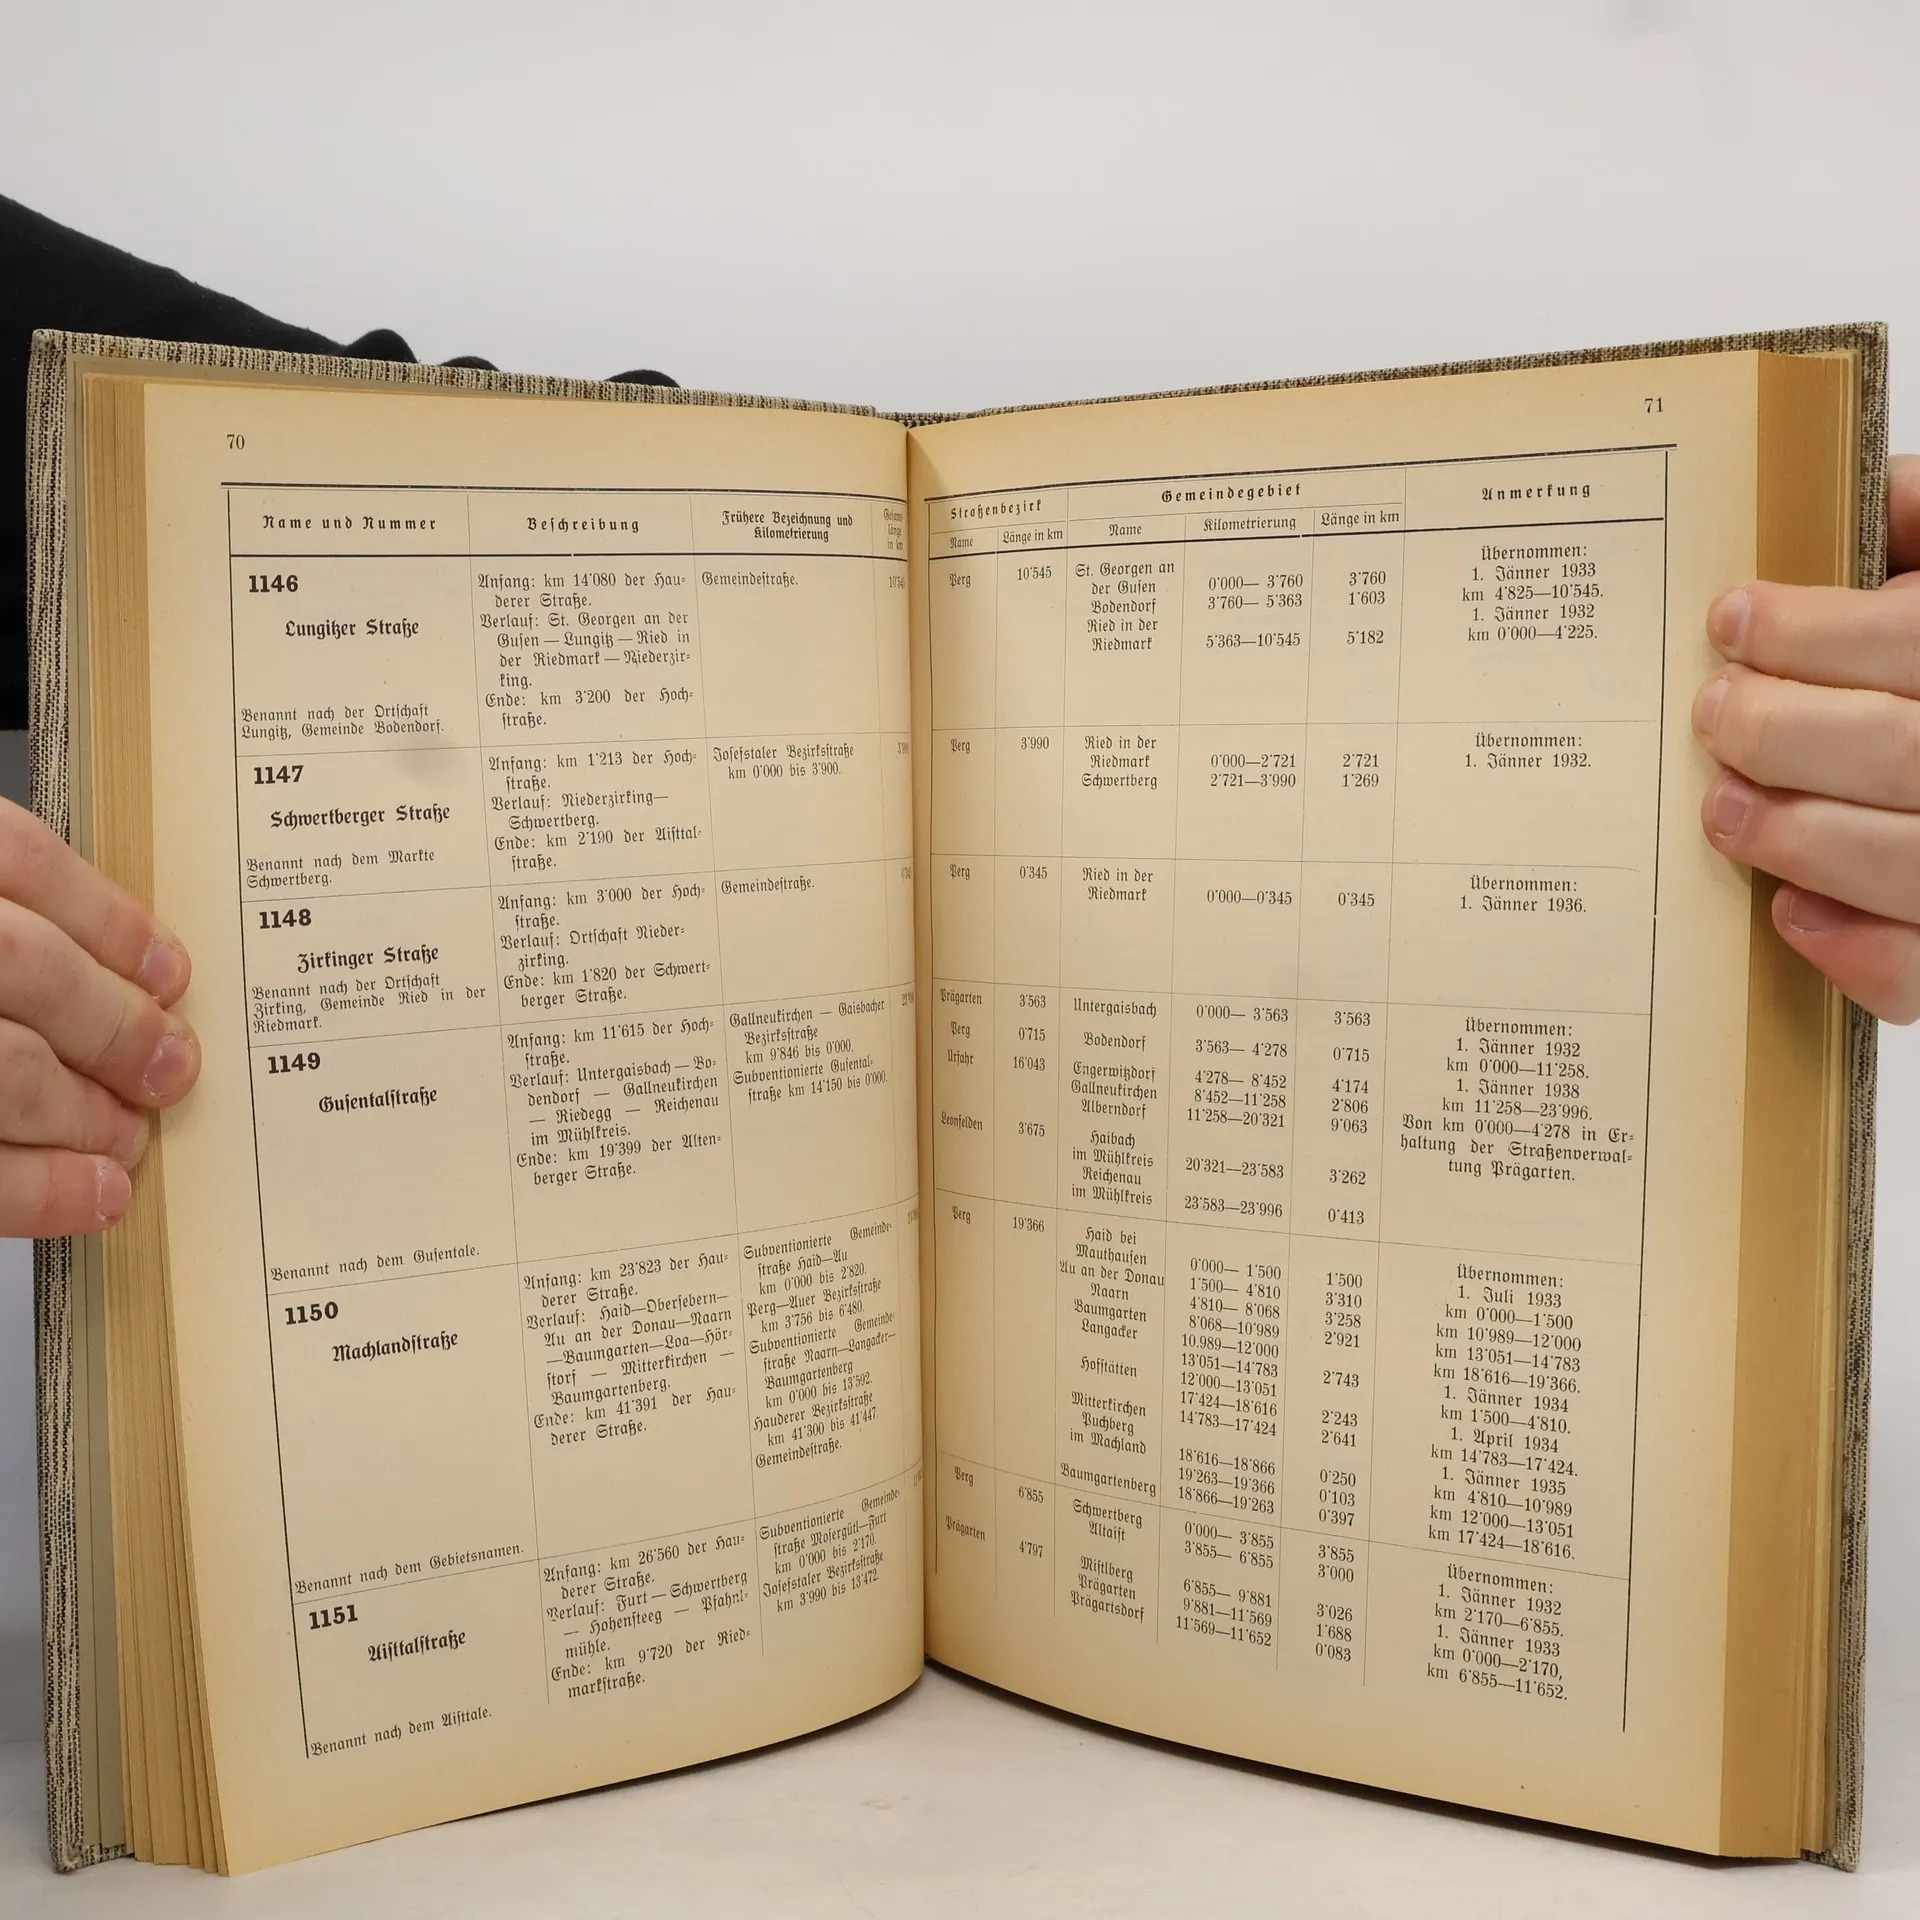 70
Name und Nummer
Beschreibung
Frühere Bezeichnung und
Kilometrierung
Gesamt-
länge
in km
1146
Lungitzer Straße
Benannt nach der Ortschaft
Lungitz, Gemeinde Bodendorf.
Anfang: km 14'080 der Hau-
derer Straße.
Verlauf: St. Georgen an der
Gusen — Lungitz — Ried in
der Riedmark — Niederzir-
king.
Ende: km 3'200 der Hoch-
straße.
Gemeindestraße.
10'545
1147
Schwertberger Straße
Benannt nach dem Markte
Schwertberg.
Anfang: km 1'213 der Hoch-
straße.
Verlauf: Niederzirking—
Schwertberg.
Ende: km 2'190 der Aisttal-
straße.
Josefstaler Bezirksstraße
km 0'000 bis 3'900.
1148
Zirkinger Straße
Benannt nach der Ortschaft
Zirking, Gemeinde Ried in der
Riedmark.
Anfang: km 3'000 der Hoch-
straße.
Verlauf: Ortschaft Nieder-
zirking.
Ende: km 1'820 der Schwert-
berger Straße.
Gemeindestraße.
1149
Gusentalstraße
Benannt nach dem Gusentale.
Anfang: km 11'615 der Hoch-
straße.
Verlauf: Untergaisbach — Bo-
dendorf — Gallneukirchen
— Riedegg — Reichenau
im Mühlkreis.
Ende: km 19'399 der Alten-
berger Straße.
Gallneukirchen — Gaisbacher
Bezirksstraße
km 9'846 bis 0'000.
Subventionierte Gusental-
straße km 14'150 bis 0'000.
1150
Machlandstraße
Benannt nach dem Gebietsnamen.
Anfang: km 23'823 der Hau-
derer Straße.
Verlauf: Haid—Obersebern—
Au an der Donau—Naarn
—Baumgarten—Loa—Hör-
storf — Mitterkirchen —
Baumgartenberg.
Ende: km 41'391 der Hau-
derer Straße.
Subventionierte Gemeinde-
straße Haid—Au
km 0'000 bis 2'820.
Perg—Auer Bezirksstraße
km 3'756 bis 6'480.
Subventionierte Gemeinde-
straße Naarn—Langacker—
Baumgartenberg
km 0'000 bis 13'592.
Hauderer Bezirksstraße
km 41'300 bis 41'447.
Gemeindestraße.
1151
Aisttalstraße
Benannt nach dem Aisttale.
Anfang: km 26'560 der Hau-
derer Straße.
Verlauf: Furt — Schwertberg
— Hohensteeg — Pfahnl-
mühle.
Ende: km 9'720 der Ried-
markstraße.
Subventionierte Gemeinde-
straße Mosergütl—Furt
km 0'000 bis 2'170.
Josefstaler Bezirksstraße
km 3'990 bis 13'472.
71
Straßenbezirk
Gemeindegebiet
Anmerkung
Name
Länge in km
Name
Kilometrierung
Länge in km
Perg 10'545
St. Georgen an
der Gusen 0'000— 3'760 3'760
Bodendorf 3'760— 5'363 1'603
Ried in der
Riedmark 5'363—10'545 5'182
Übernommen:
1. Jänner 1933
km 4'825—10'545.
1. Jänner 1932
km 0'000—4'225.
Perg 3'990
Ried in der
Riedmark 0'000—2'721 2'721
Schwertberg 2'721—3'990 1'269
Übernommen:
1. Jänner 1932.
Perg 0'345
Ried in der
Riedmark 0'000—0'345 0'345
Übernommen:
1. Jänner 1936.
Prägarten 3'563 Untergaisbach 0'000— 3'563 3'563
Perg 0'715 Bodendorf 3'563— 4'278 0'715
Urfahr 16'043 Engerwitzdorf 4'278— 8'452 4'174
Gallneukirchen 8'452—11'258 2'806
Alberndorf 11'258—20'321 9'063
Leonfelden 3'675 Haibach
im Mühlkreis 20'321—23'583 3'262
Reichenau
im Mühlkreis 23'583—23'996 0'413
Übernommen:
1. Jänner 1932
km 0'000—11'258.
1. Jänner 1938
km 11'258—23'996.
Von km 0'000—4'278 in Er-
haltung der Straßenverwal-
tung Prägarten.
Perg 19'366
Haid bei
Mauthausen 0'000— 1'500 1'500
Au an der Donau 1'500— 4'810 3'310
Naarn 4'810— 8'068 3'258
Baumgarten 8'068—10'989 2'921
Langacker 10.989—12'000
13'051—14'783 2'743
Hofstätten 12'000—13'051
17'424—18'616 2'243
Mitterkirchen 14'783—17'424 2'641
Puchberg
im Machland 18'616—18'866 0'250
19'263—19'366 0'103
Baumgartenberg 18'866—19'263 0'397
Übernommen:
1. Juli 1933
km 0'000—1'500
km 10'989—12'000
km 13'051—14'783
km 18'616—19'366.
1. Jänner 1934
km 1'500—4'810.
1. April 1934
km 14'783—17'424.
1. Jänner 1935
km 4'810—10'989
km 12'000—13'051
km 17'424—18'616.
Perg 6'855 Schwertberg 0'000— 3'855 3'855
Altaist 3'855— 6'855 3'000
Prägarten 4'797 Mistlberg 6'855— 9'881 3'026
Prägarten 9'881—11'569 1'688
Prägartsdorf 11'569—11'652 0'083
Übernommen:
1. Jänner 1932
km 2'170—6'855.
1. Jänner 1933
km 0'000—2'170,
km 6'855—11'652.